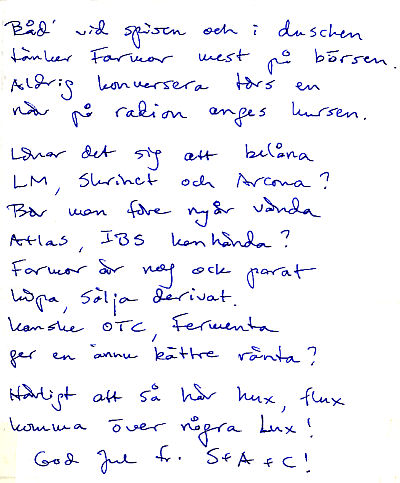 Båd' vid spisen och i duschen
tänker Farmor mest på börsen.
Aldrig konversera törs en
när på radion anges kursen.
Lönar det sig att belåna
LM, Skrinet och Arcona?
Bör man före nyår vända
Atlas, IBS kanhända?
Farmor är nog ock parat
köpa, sälja derivat.
Kanske OTC, Fermenta
ger en ännu bättre ränta?
Härligt att så här hux, flux
komma över några Lux!
God Jul fr. S+A+C!